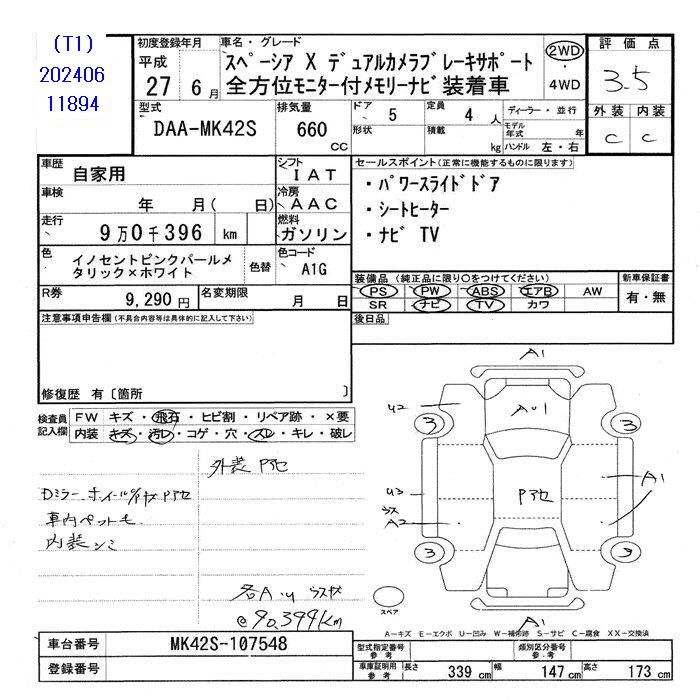 (T1)
202406
11894
初度登録年月
平成
27 6月
車名・グレード
スペーシア X デュアルカメラブレーキサポート
全方位モニター付メモリーナビ装着車
2WD
・
4WD
評価点
3.5
外装 内装
C C
型式
DAA-MK42S
排気量
660
CC
ドア 5
形状
定員 4 人
積載 kg
ディーラー・並行
モデル年式 年
ハンドル 左・右
車歴
自家用
シフト
IAT
車検
年 月( 日)
冷房
AAC
走行
9万0千396 km
燃料
ガソリン
色
イノセントピンクパールメ
タリック×ホワイト
色替
色コード
A1G
R券
9,290円
名変期限
月 日
セールスポイント(正常に機能するものに限ります)
・パワースライドドア
・シートヒーター
・ナビ TV
装備品 (純正品に限り○をつけてください)
PS PW ABS エアB AW
SR ナビ TV カワ
新車保証書
有・無
後日品
注意事項申告欄(不具合内容等は具体的に記入して下さい)
修復歴 有〔箇所 〕
検査員
記入欄
FW キズ・飛石・ヒビ割・リペア跡・×要
内装 キズ・汚レ・コゲ・穴・スレ・キレ・破レ
外装 Pアセ
Dミラー ホイール/イヤス Pアセ
車内ペットモ
内装シミ
各A・U ウスキズ
@90,399km
A1
U2
A・U1
3
3
A1
U3
Pアセ
ウス
A2
3
3
スペア
A1
A-キズ E-エクボ U-凹み W-補修跡 S-サビ C-腐食 XX-交換済
車台番号
MK42S-107548
登録番号
型式指定番号
参考
類別区分番号
参考
車庫証明用
参考
長さ 339 cm 幅 147 cm 高さ 173 cm